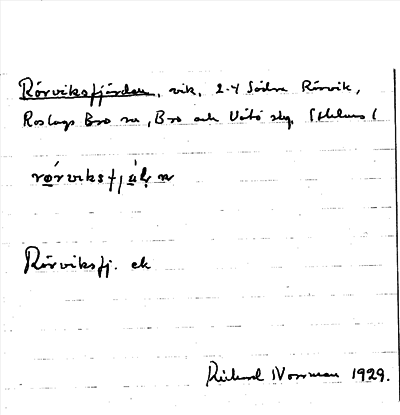 Rörviksfjärden, vik, 2-4 Södra Rörvik,
Roslags Bro sn, Bro och Vätö skg. Sthlms l
rörviksfjäḷṇ
Rörviksfj. ek
Rickard Norrman 1929.